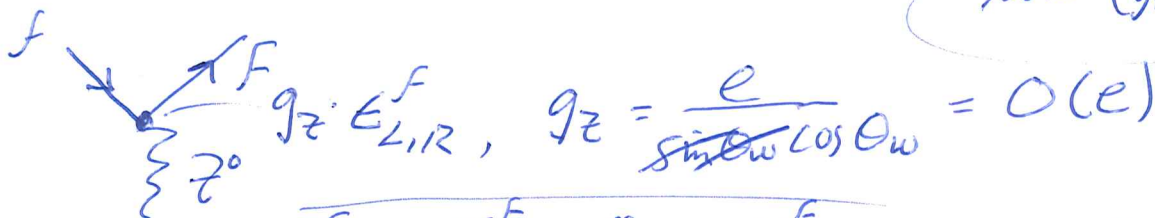 f F g_Z · ε^f_{L,R}, g_Z = e / sinθ_w cosθ_w = O(e)
Z⁰